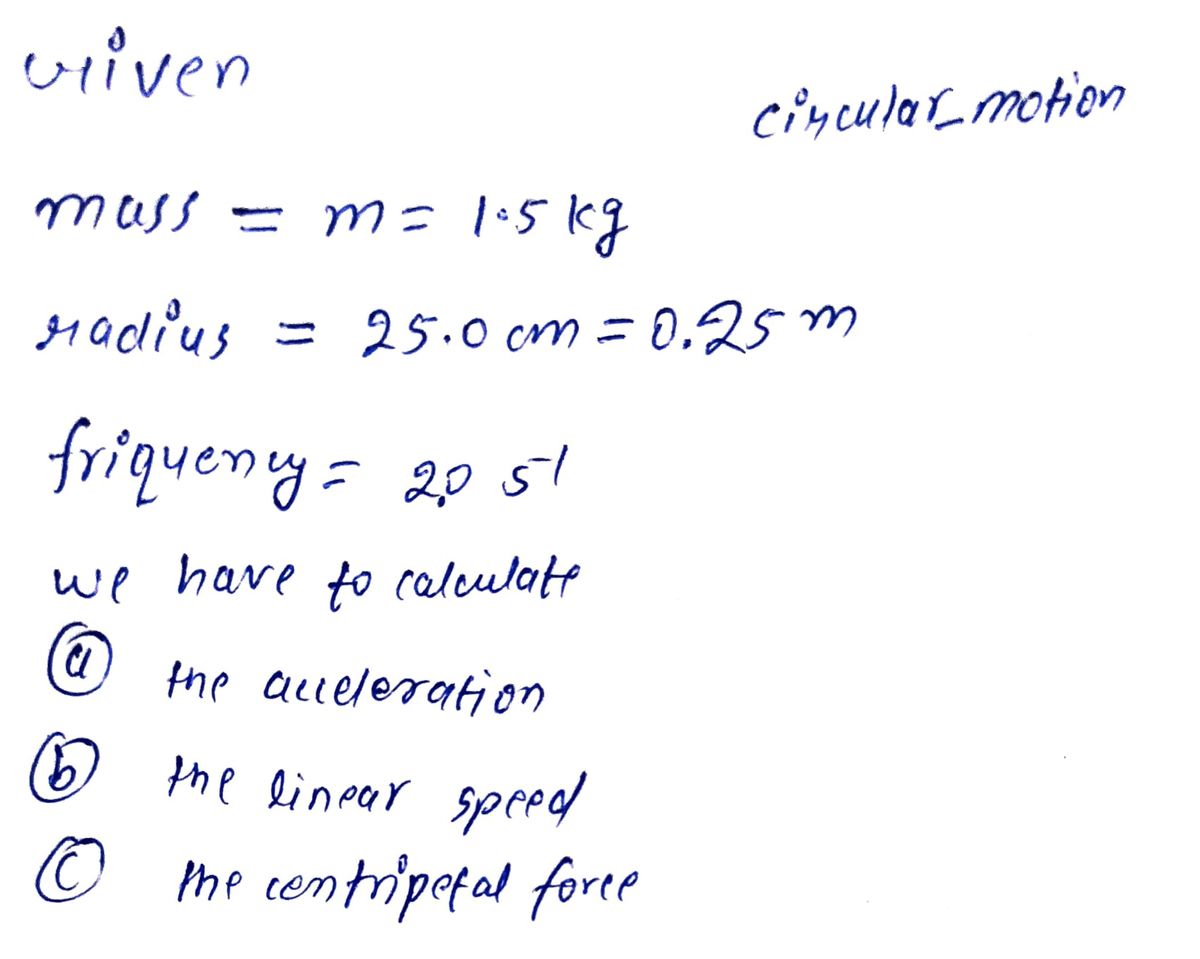 Given
circular_motion
mass = m = 1.5 kg
radius = 25.0 cm = 0.25 m
friquency = 2.0 s⁻¹
we have to calculate
(a) the acceleration
(b) the linear speed
(c) the centripetal force